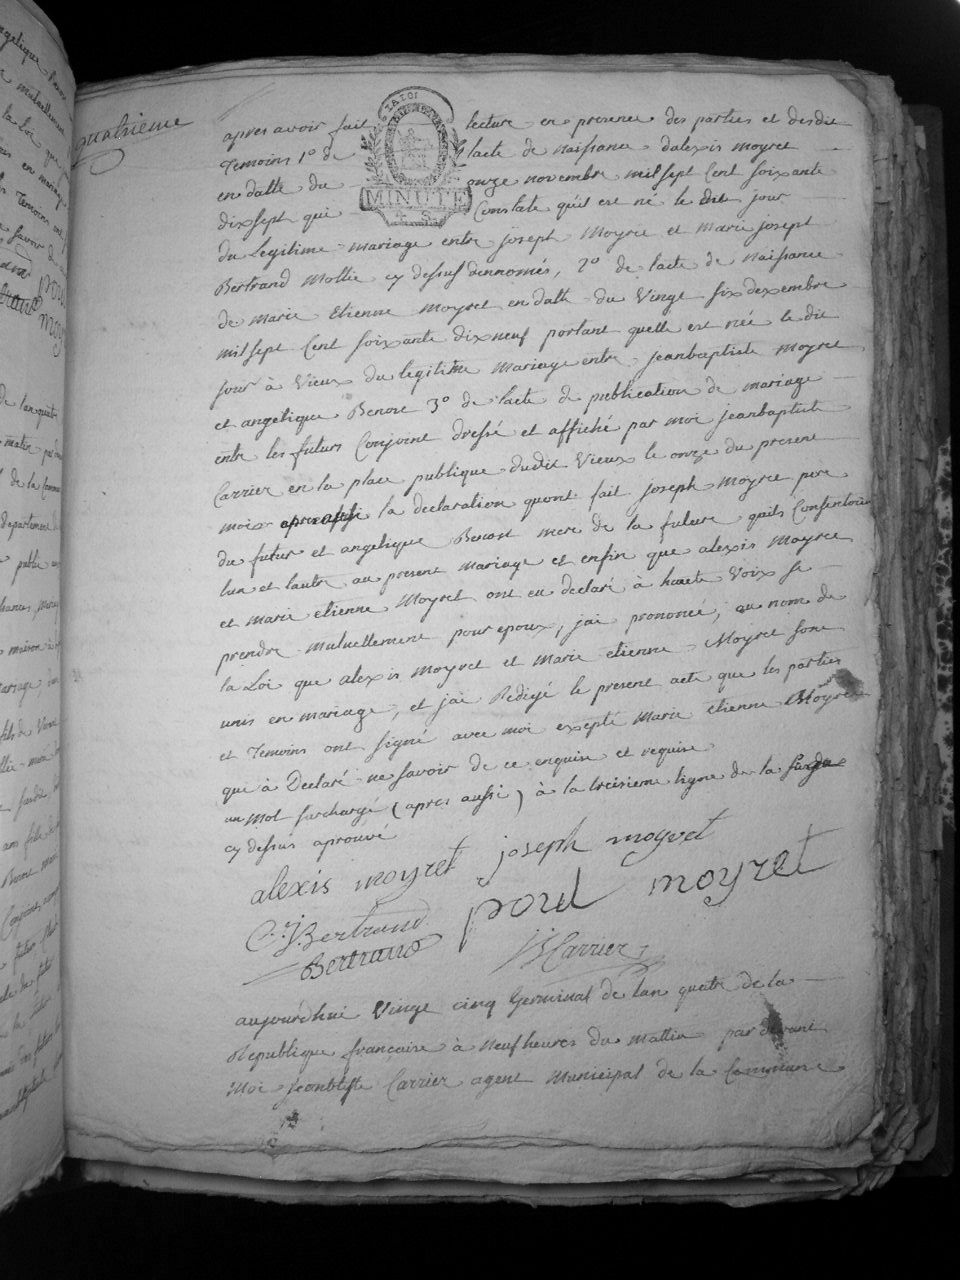 quatrieme
LA LOI
MINUTE
4. S.
apres avoir fait lecture en presence des parties et desdit
Temoins 1o de lacte de naissance dalexis moyret
en datte du onze novembre mil sept Cent soixante
dixsept qui Constate quil est né le dit jour
du legitime mariage entre joseph Moyret et marie joseph
Bertrand Mollie cy dessus dennomés, 2o de lacte de naissance
de marie Etienne moyret en datte du Vingt six dexembre
mil sept Cent soixante dix neuf portant quelle est née le dit
jour à Vieux du legitime mariage entre jeanbaptiste moyret
et angelique Benone 3o de lacte de publication de mariage
entre les futurs Conjoint dressé et affiché par moi jeanbaptiste
Carrier en la place publique dudit Vieux le onze du present
mois la declaration quont fait joseph Moyret pere
du futur et angelique Benont mere de la future quils Consentoient
lun et lautre au present mariage et enfin que alexis Moyret
et marie etienne Moyret ont eu declaré à haute Voix se
prendre mutuellement pour epoux, jai prononcé, au nom de
la Loi que alexis moyret et marie etienne Moyret sont
unis en mariage, et jai Redigé le present acte que les parties
et Temoins ont signé avec moi exepté Marie etienne Moyret
qui à Declaré ne savoir de ce enquise et requise
un mot surchargé (apres aussi) à la treisieme ligne de la
cy dessus aprouvé
alexis moyret joseph moyret
C. j Bertrand poud moyret
Bertrand JB Carrier
aujourdhui Vingt cinq Germinal de lan quatre de la
Republique francaise à neuf heures du mattin par devant
Moi jeanbtiste Carrier agent Municipal de la Commune